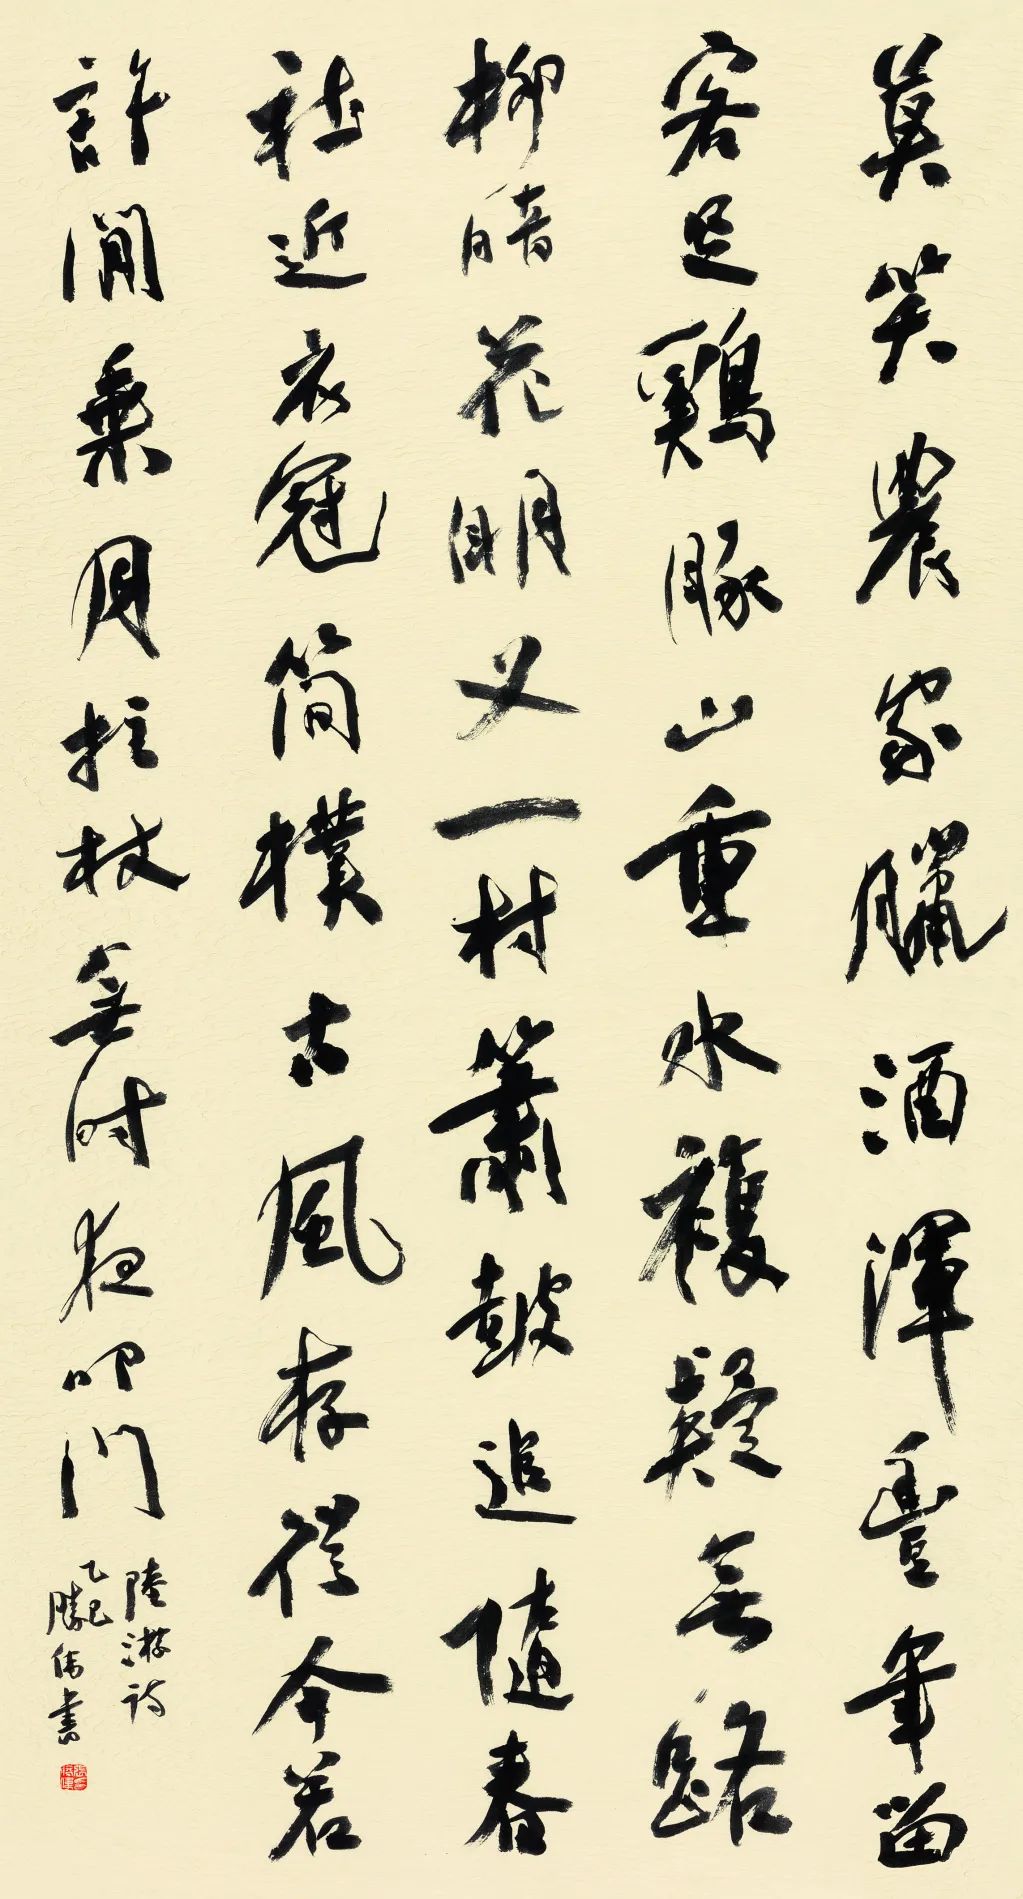 莫笑農家臘酒渾豐年留
客足鷄豚山重水複疑無路
柳暗花明又一村簫鼓追隨春
社近衣冠簡樸古風存從今若
許閒乘月拄杖無時夜叩門
陸游詩
乙巳勝偉書